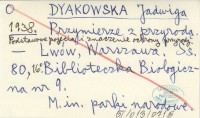 O DYAKOWSKA Jadwiga
1938. Przymierze z przyrodą.
Podstawowe pojęcia i znaczenie ochrony przyrody
— Lwów, Warszawa, ss.
80, 16°. Biblioteczka Biologicz-
na nr 9.
M. in. parki narodowe.